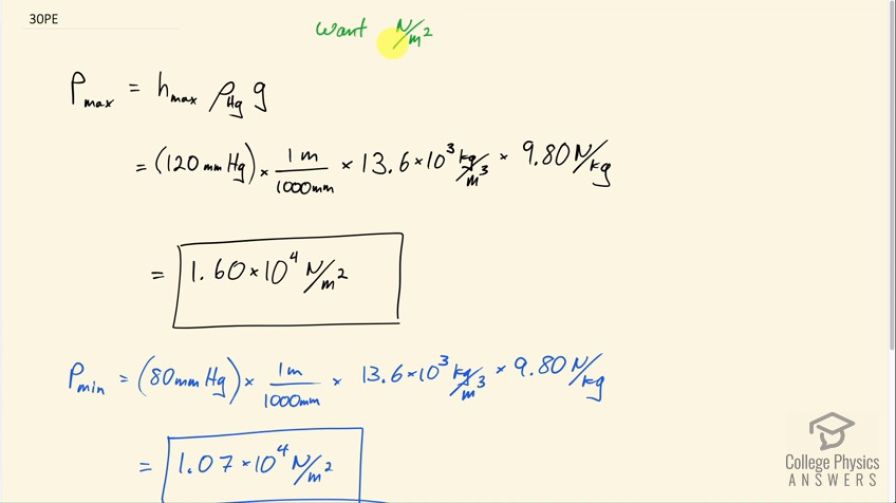 30PE
want N/m²
P_max = h_max ρ_Hg g
= (120 mm Hg) × 1 m / 1000 mm × 13.6 × 10³ kg/m³ × 9.80 N/kg
= 1.60 × 10⁴ N/m²
P_min = (80 mm Hg) × 1 m / 1000 mm × 13.6 × 10³ kg/m³ × 9.80 N/kg
= 1.07 × 10⁴ N/m²
College Physics
ANSWERS